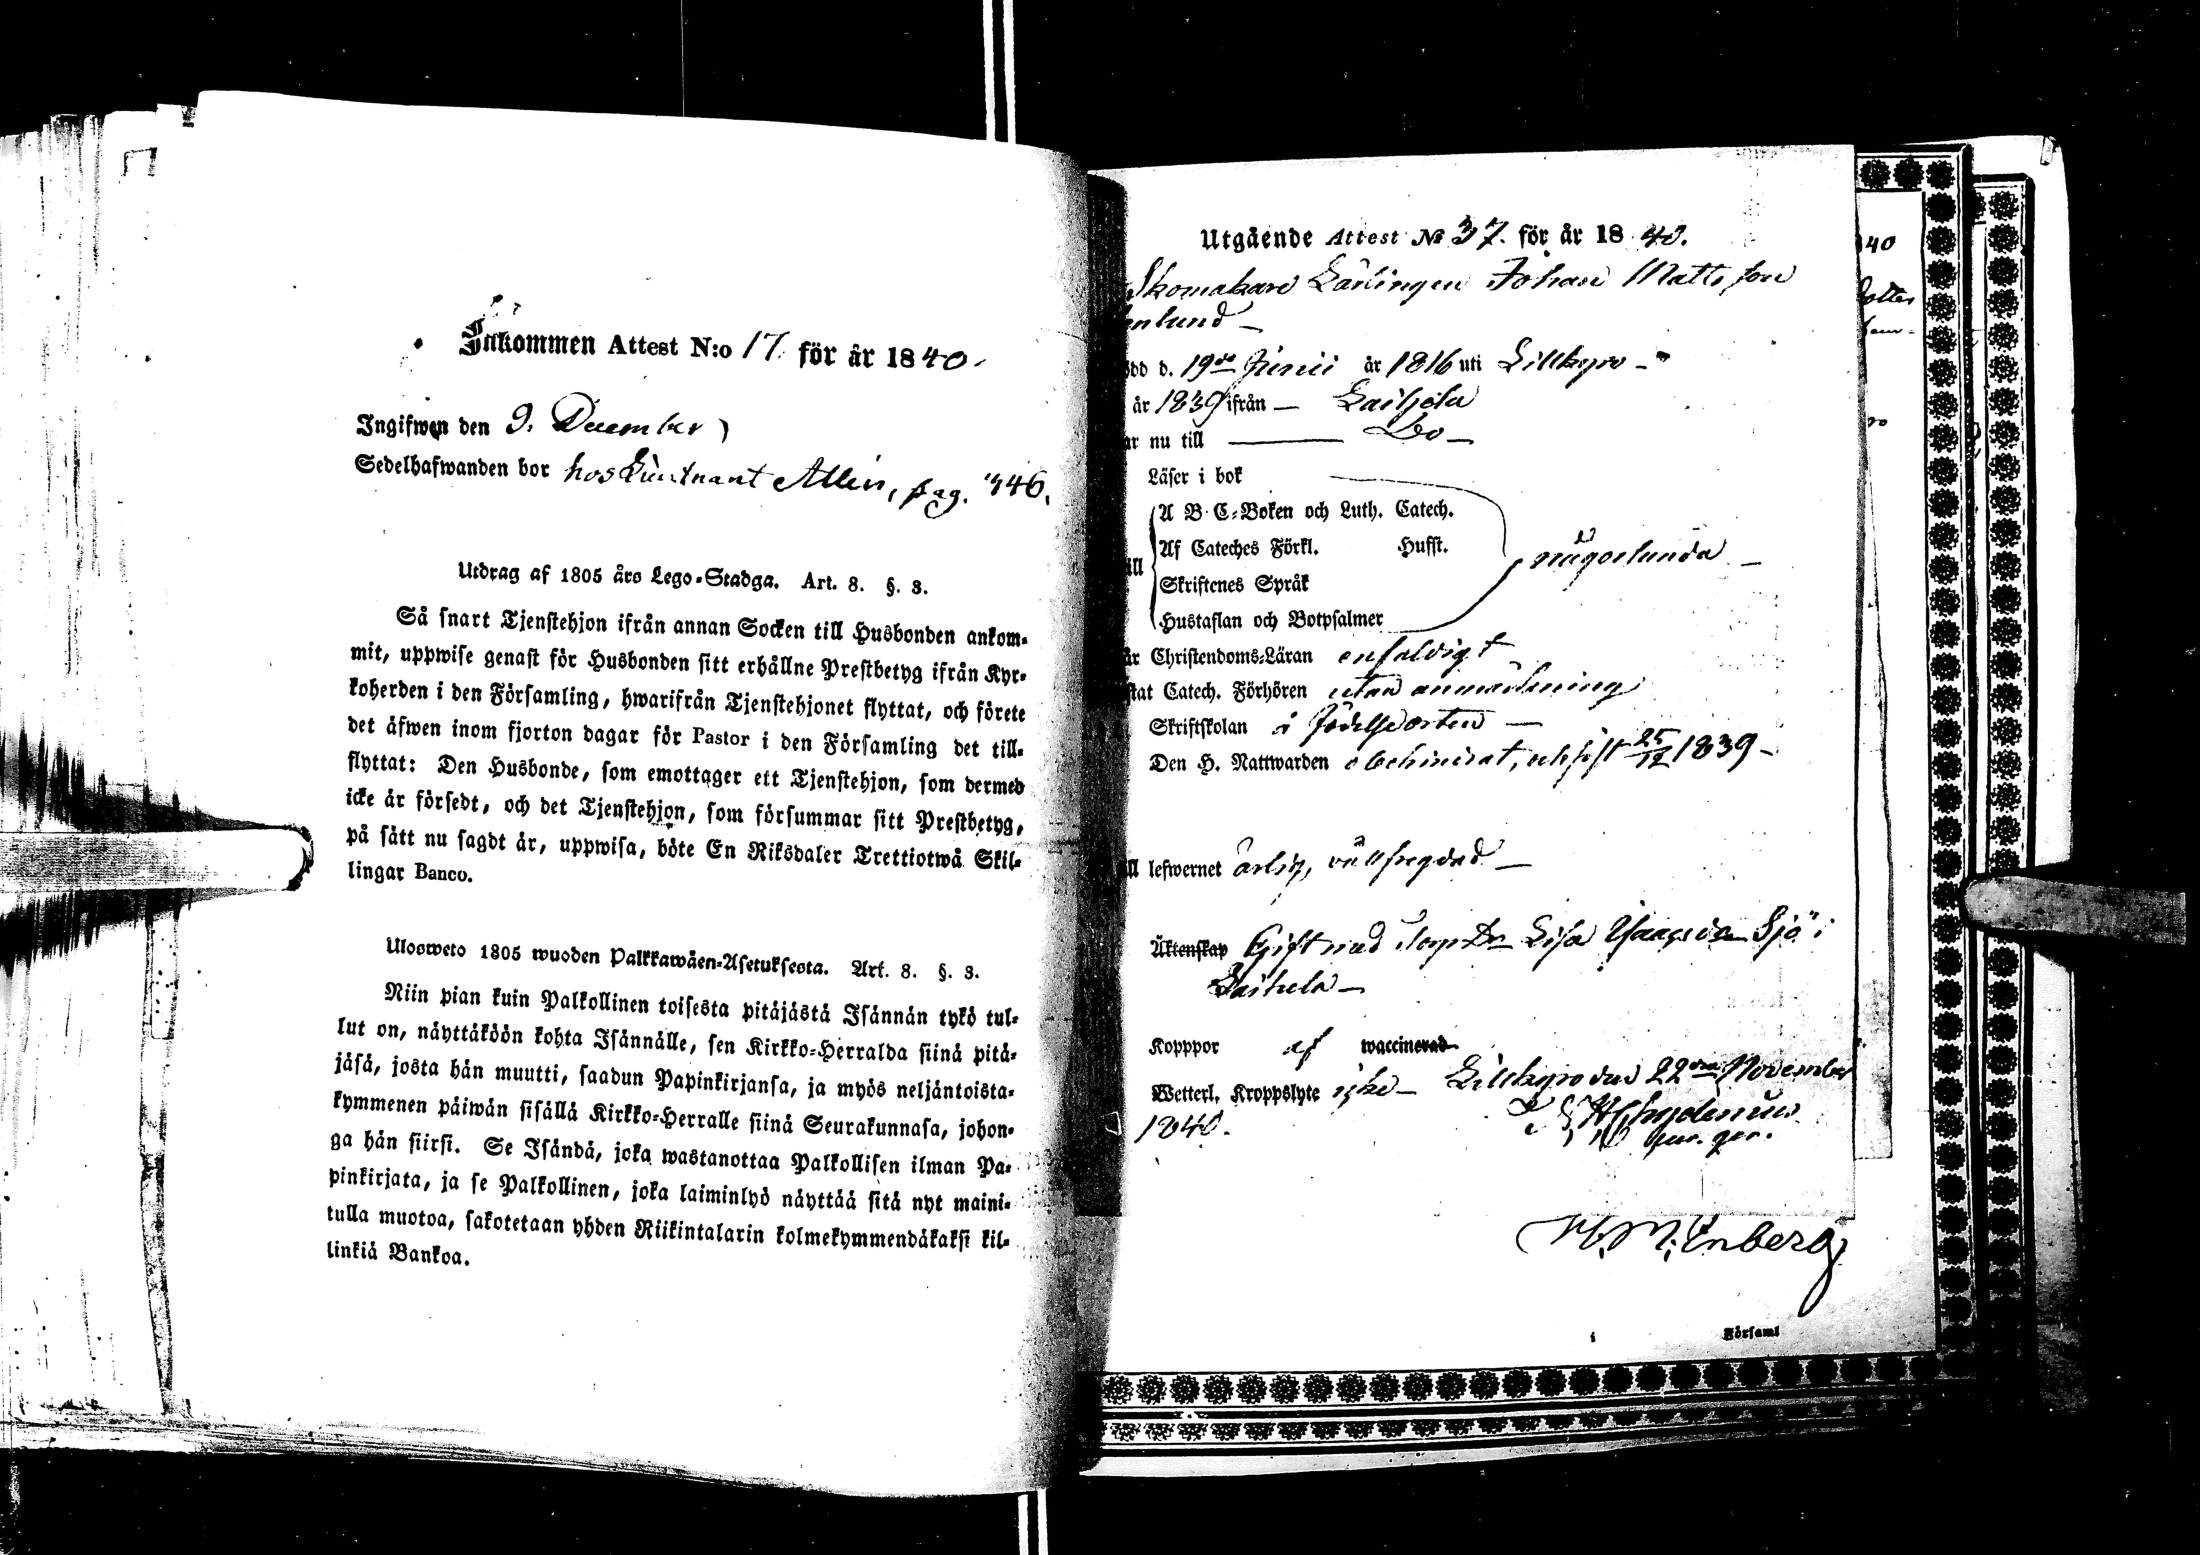 Inkommen Attest N:o 17. för år 1840.
Ingifwen den 9. December
Sedelhafwanden bor hos Lieutnant Allén, pag. 446.
Utdrag af 1805 års Lego-Stadga. Art. 8. §. 3.
Så snart Tjenstehjon ifrån annan Socken till Husbonden ankom-
mit, uppwise genast för Husbonden sitt erhållne Prestbetyg ifrån Kyr-
koherden i den Församling, hwarifrån Tjenstehjonet flyttat, och förete
det äfwen inom fjorton dagar för Pastor i den Församling det till-
flyttat: Den Husbonde, som emottager ett Tjenstehjon, som dermed
icke är försedt, och det Tjenstehjon, som försummar sitt Prestbetyg,
på sätt nu sagdt är, uppwisa, böte En Riksdaler Trettiotwå Skil-
lingar Banco.
Ulosweto 1805 wuoden Palkkawäen-Asetuksesta. Art. 8. §. 3.
Niin pian kuin Palkollinen toisesta pitäjästä Isännän tykö tul-
lut on, näyttäköön kohta Isännälle, sen Kirkko-Herralda siinä pitä-
jäsä, josta hän muutti, saadun Papinkirjansa, ja myös neljäntoista-
kymmenen päiwän sisällä Kirkko-Herralle siinä Seurakunnasa, johon-
ga hän siirsi. Se Isändä, joka wastanottaa Palkollisen ilman Pa-
pinkirjata, ja se Palkollinen, joka laiminlyö näyttää sitä nyt maini-
tulla muotoa, sakotetaan yhden Riikintalarin kolmekymmendäkaksi kil-
linkiä Bankoa.
Utgående Attest No 37. för år 1840.
Skomakare Lärlingen Johan Mattsson
nlund
dd d. 19de Junii år 1816 uti Lillkyro
år 1839 ifrån Laihela
ar nu till Do
Läser i bok
A B C-Boken och Luth. Catech.
Af Cateches Förkl. Hufst.
ill
Skriftenes Språk
någorlunda
Hustaflan och Botpsalmer
år Christendoms-Läran enfaldigt
stat Catech. Förhören utan anmärkning
Skriftskolan å födelseorten
Den H. Nattwarden obehindrat, sist 25/12 1839
ll lefwernet ärlig, välfregdad
Äktenskap Gift med Lisa Isaacsdr Sjö i
Laihela
Kopppor af waccinerad
Wetterl. Kroppslyte icke Lillkyro den 22 November
1840.
Chydenius
M. Enberg
i Församl
40